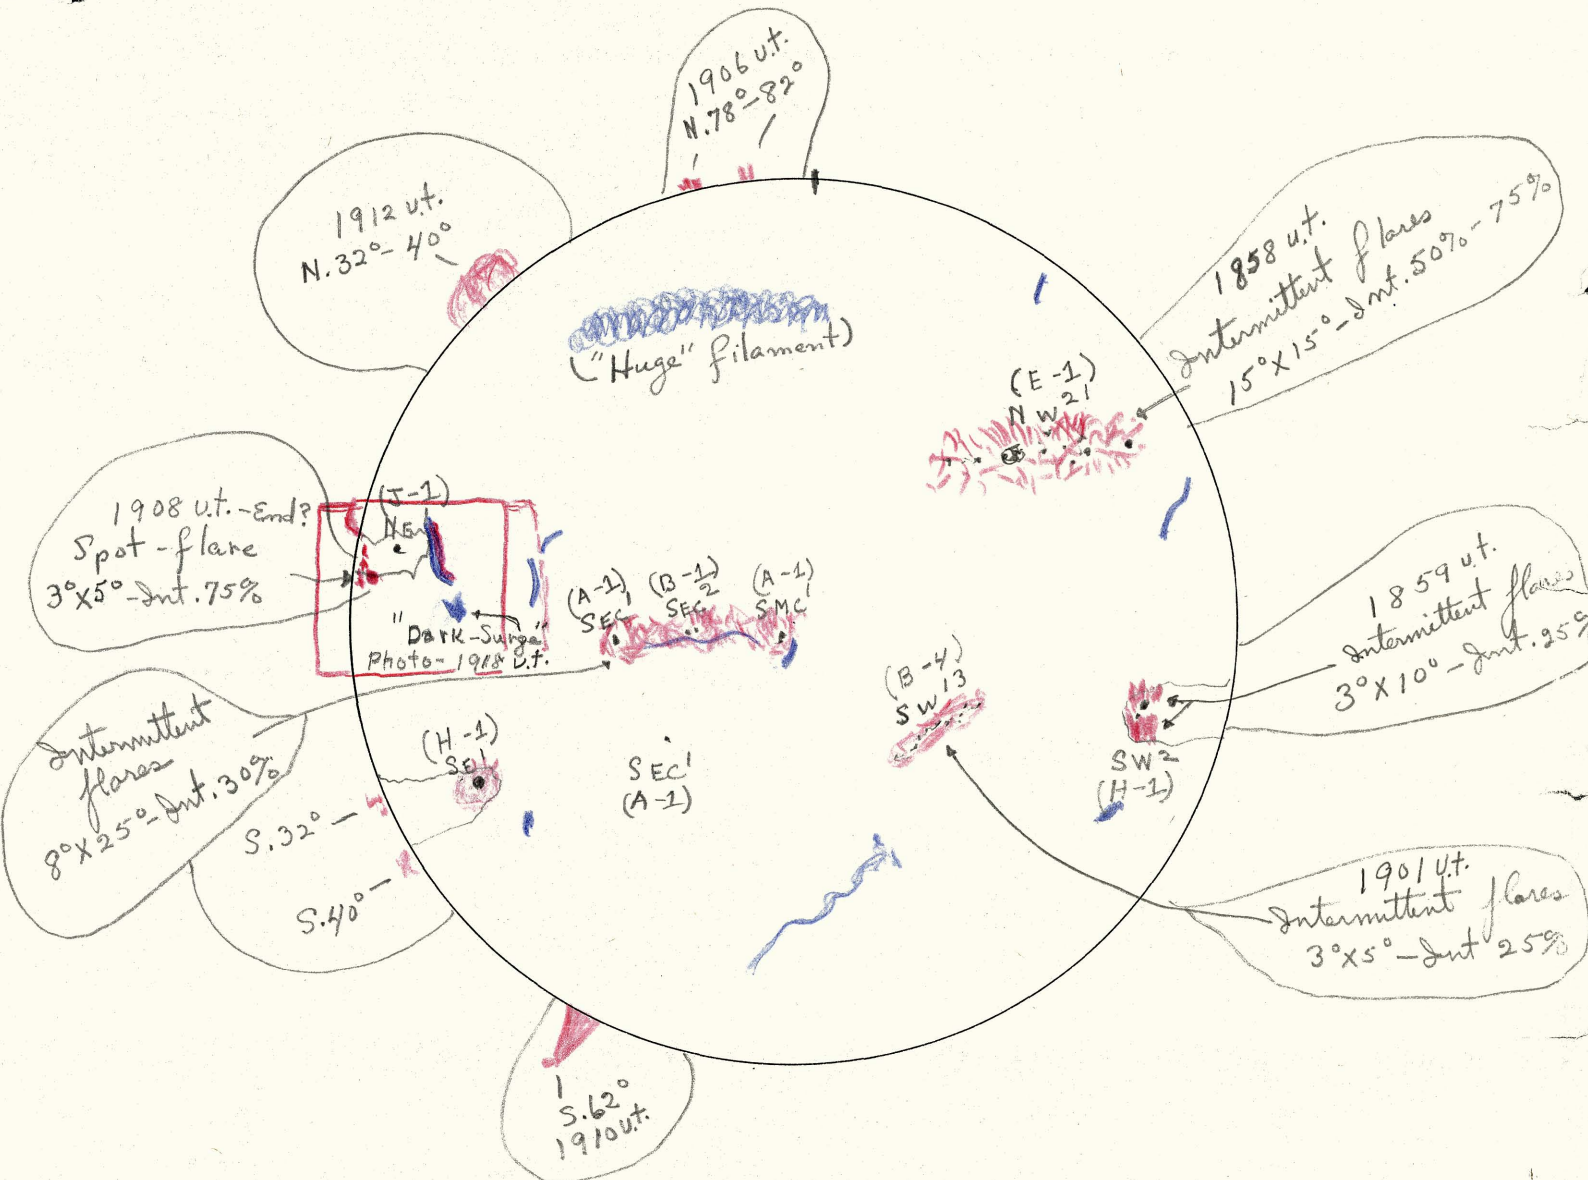 1906 u.t.
N.78°-82°
1912 u.t.
N.32°-40°
1858 u.t.
Intermittent flares
15°X15°-Int.50%-75%
("Huge" filament)
(E-1)
NW21
1908 u.t.-End?
Spot-flare
3°X5°-Int.75%
(J-1)
NE1
"Dark-Surge"
Photo-1918 u.t.
(A-1)
SEC1
(B-1)
SEC2
(A-1)
SMC1
1859 u.t.
Intermittent flares
3°X10°-Int.25%
(B-4)
SW13
SW2
(H-1)
Intermittent
flares
8°X25°-Int.30%
(H-1)
SE1
SEC1
(A-1)
S.32°
S.40°
1901 u.t.
Intermittent flares
3°X5°-Int 25%
S.62°
1910 u.t.